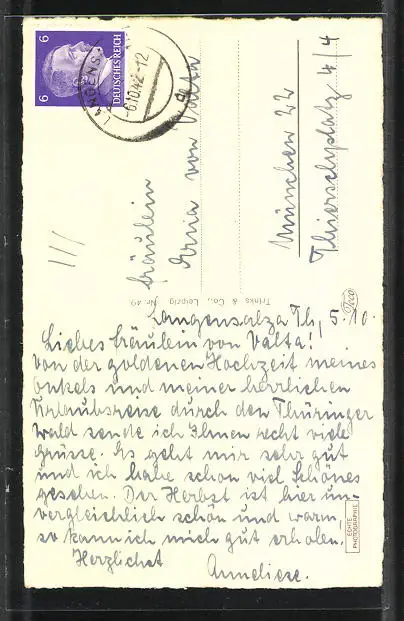 6 6
DEUTSCHES REICH
LANGENS
-6.10.42-12
Fräulein
Erna von Valta
München 22
Thierschplatz 4/4
Trinks & Co., Leipzig Nr. 49
Trico
Langensalza Th, 5.10.
Liebes Fräulein von Valta!
Von der goldenen Hochzeit meines
Onkels und meiner herrlichen
Urlaubsreise durch den Thüringer
Wald sende ich Ihnen recht viele
Grüsse. Es geht mir sehr gut
und ich habe schon viel Schönes
gesehen. Der Herbst ist hier un-
vergleichlich schön und warm,
so kann ich mich gut erholen.
Herzlichst
Anneliese.
ECHTE
PHOTOGRAPHIE